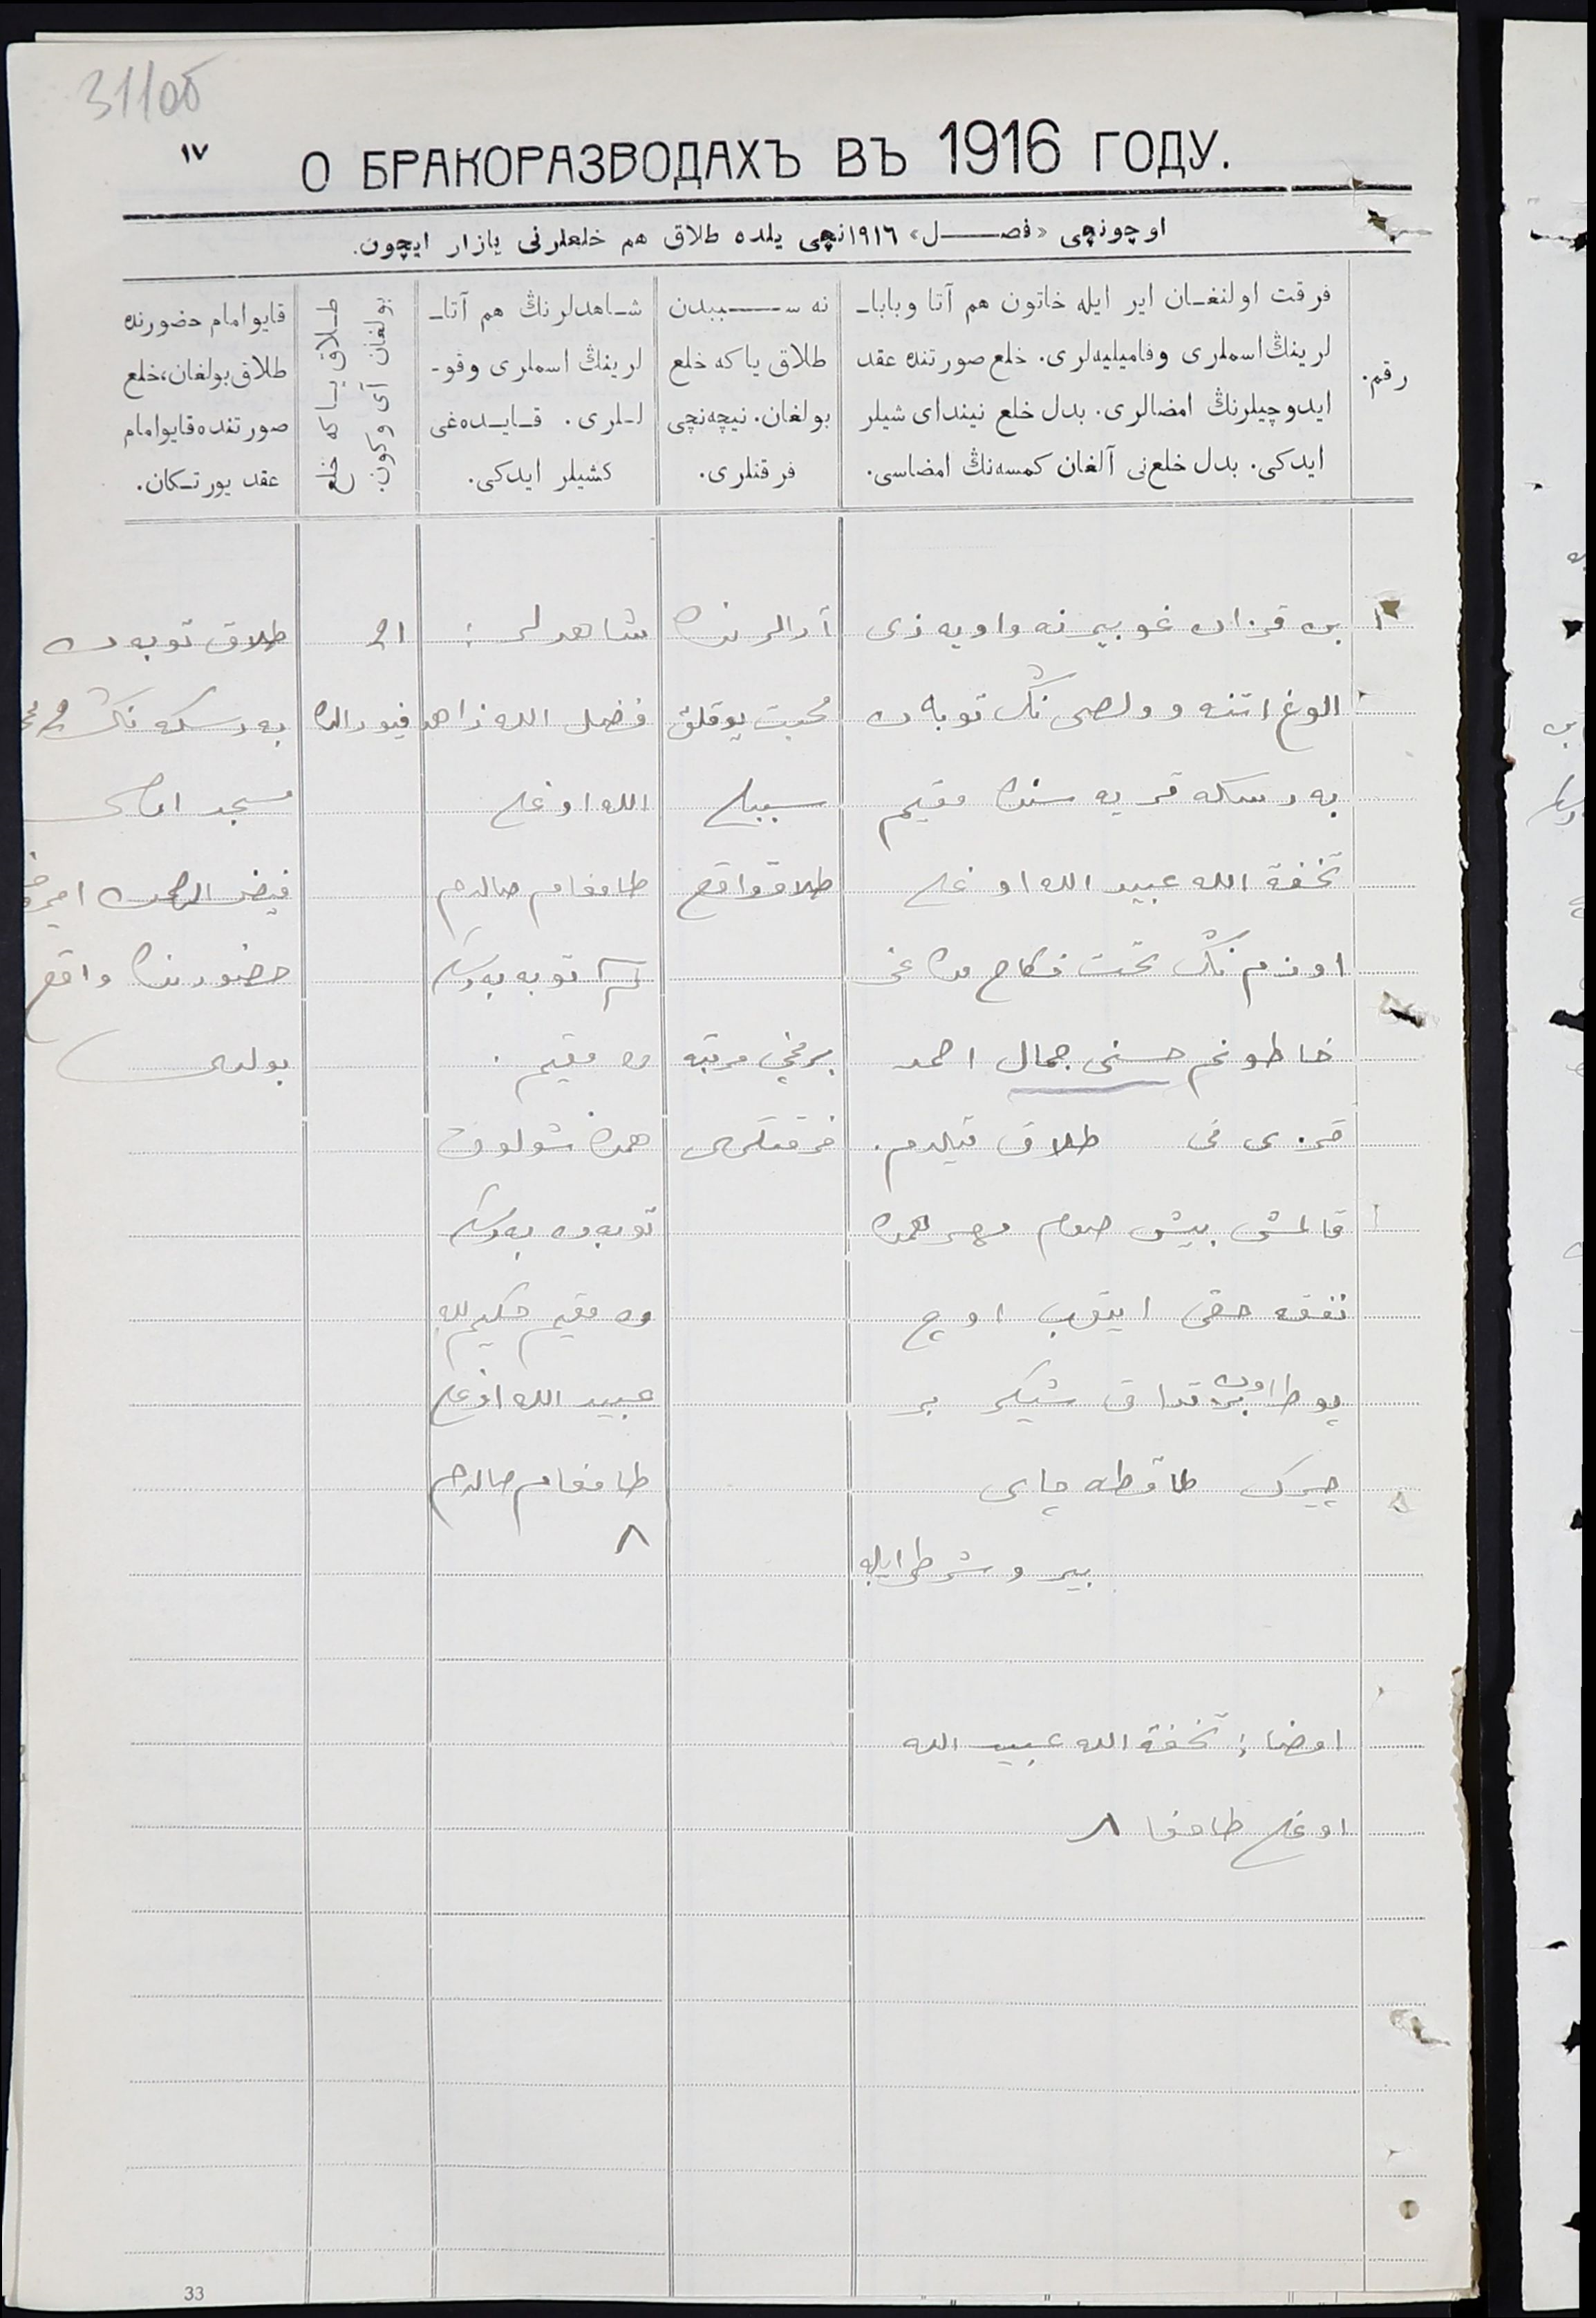 31/05
١٧
О БРАКОРАЗВОДАХЪ ВЪ 1916 ГОДУ.
اوچونچی «فصل» ١٩١٦نچی یلده طلاق هم خلعلرنی یازار ایچون.
رقم.
فرقت اولنغان ایر ایله خاتون هم آتا وبابا-
لرینڭ اسملری وفامیلیه‌لری. خلع صورتنده عقد
ایدوچیلرنڭ امضالری. بدل خلع نیندای شیلر
ایدکی. بدل خلع‌نی آلغان کمسه‌نڭ امضاسی.
نه سببدن
طلاق یا که خلع
بولغان. نیچه‌نچی
فرقتلری.
شاهدلرنڭ هم آتا-
لرینڭ اسملری وقو-
لـلری. قایده‌غی
کشیلر ایدکی.
طلاق یا که خلع
بولغان آی وکون.
قایو امام حضورنده
طلاق بولغان، خلع
صورتنده قایو امام
عقد یورتکان.
١
بن قزان غوبیرنه
الوغ اتنه وولصی نڭ توبان
به رسکه قریه سنده مقیم
تحفة الله عبید الله اوغلی
اوزم نڭ تحت نکاح مده غی
خاطونم حسنی جمال احمد
قزی نی طلاق قیلدم.
قالمش بیش صوم مهر همده
نفقه حقی ایتوب اوچ
پوط اون بر قداق شیکر بر
چیرک طاقطه چای
بیرو شرطی ایله
امضا: تحفة الله عبید الله
اوغلی طامغا ٨
آرالرنده
محبت یوقلق
سببلی
طلاق واقع
برنچی مرتبه
فرقتلری
شاهدلر:
فضل الله زاهد
الله اوغلی
طامغام صالدم
توبه به رسکه
ده مقیم.
همده شولوق
توبه ده به رسکه
ده مقیم حکیم لله
عبید الله اوغلی
طامغام صالدم
٨
فیورالده
طلاق توبه ن
به رسکه نڭ
مسجد امامی
فیض الرحمن
حضورنده واقع
بولدی
33